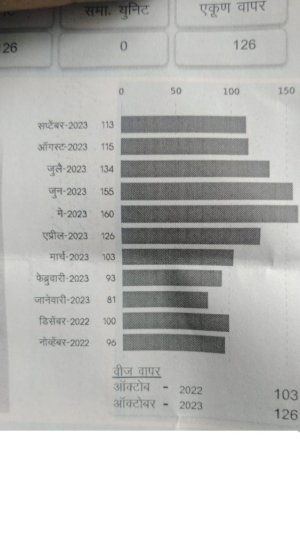 समा. युनिट एकूण वापर
126 0 126
0 50 100 150
सप्टेंबर-2023 113
ऑगस्ट-2023 115
जुलै-2023 134
जुन-2023 155
मे-2023 160
एप्रील-2023 126
मार्च-2023 103
फेब्रुवारी-2023 93
जानेवारी-2023 81
डिसेंबर-2022 100
नोव्हेंबर-2022 96
वीज वापर
ऑक्टोब - 2022 103
ऑक्टोबर - 2023 126